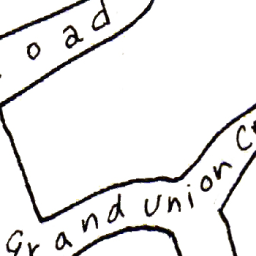 oad
Grand Union C